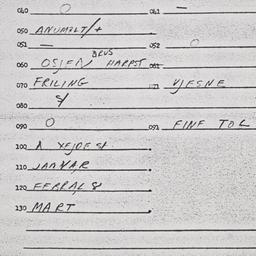 040 O 041 —
050 ANUMOLT/+
051 — 052 O
BRUS
060 OSJEN HARPST 061
070 FRILING VJESNE
080
090 O 091 FINE TOL
100 A
110 JANVAR
120 FEBRAL 8
130 MART